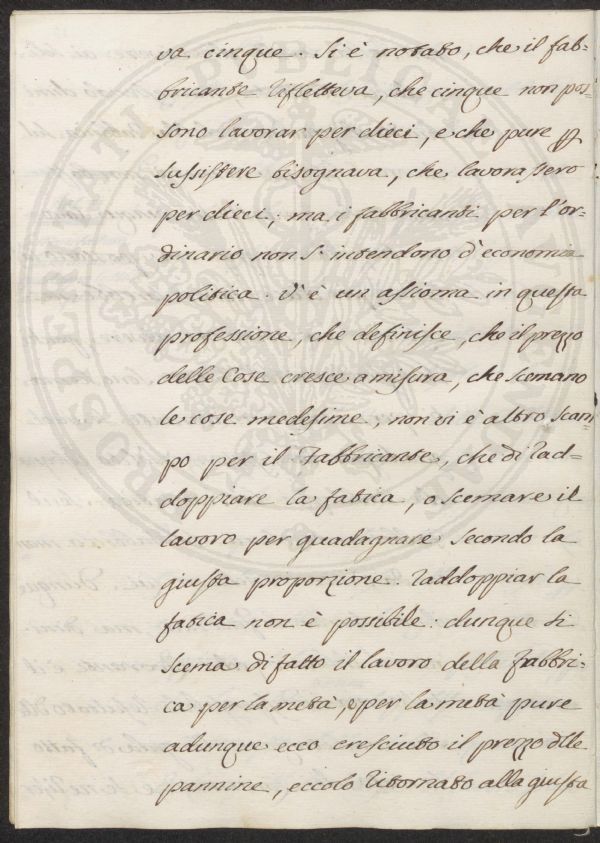 va cinque. Si è notato, che il fab-
bricante rifletteva, che cinque non pos-
sono lavorar per dieci, e che pure p
sussistere bisognava, che lavorassero
per dieci; ma i fabbricanti per l'or-
dinario non s' intendono d' economia
politica. V' è un assioma in questa
professione, che definisce, che il prezzo
delle Cose cresce a misura, che scemano
le cose medesime, non vi è altro scam
po per il Fabbricante, che di rad-
doppiare la fatica, o scemare il
lavoro per guadagnare secondo la
giusta proporzione. raddoppiar la
fatica non è possibile: dunque si
scema di fatto il lavoro della Fabbri-
ca per la metà, e per la metà pure
adunque ecco cresciuto il prezzo dlle
pannine, eccolo ritornato alla giusta
PROSPERITATI PUBLICAE AUGENDAE